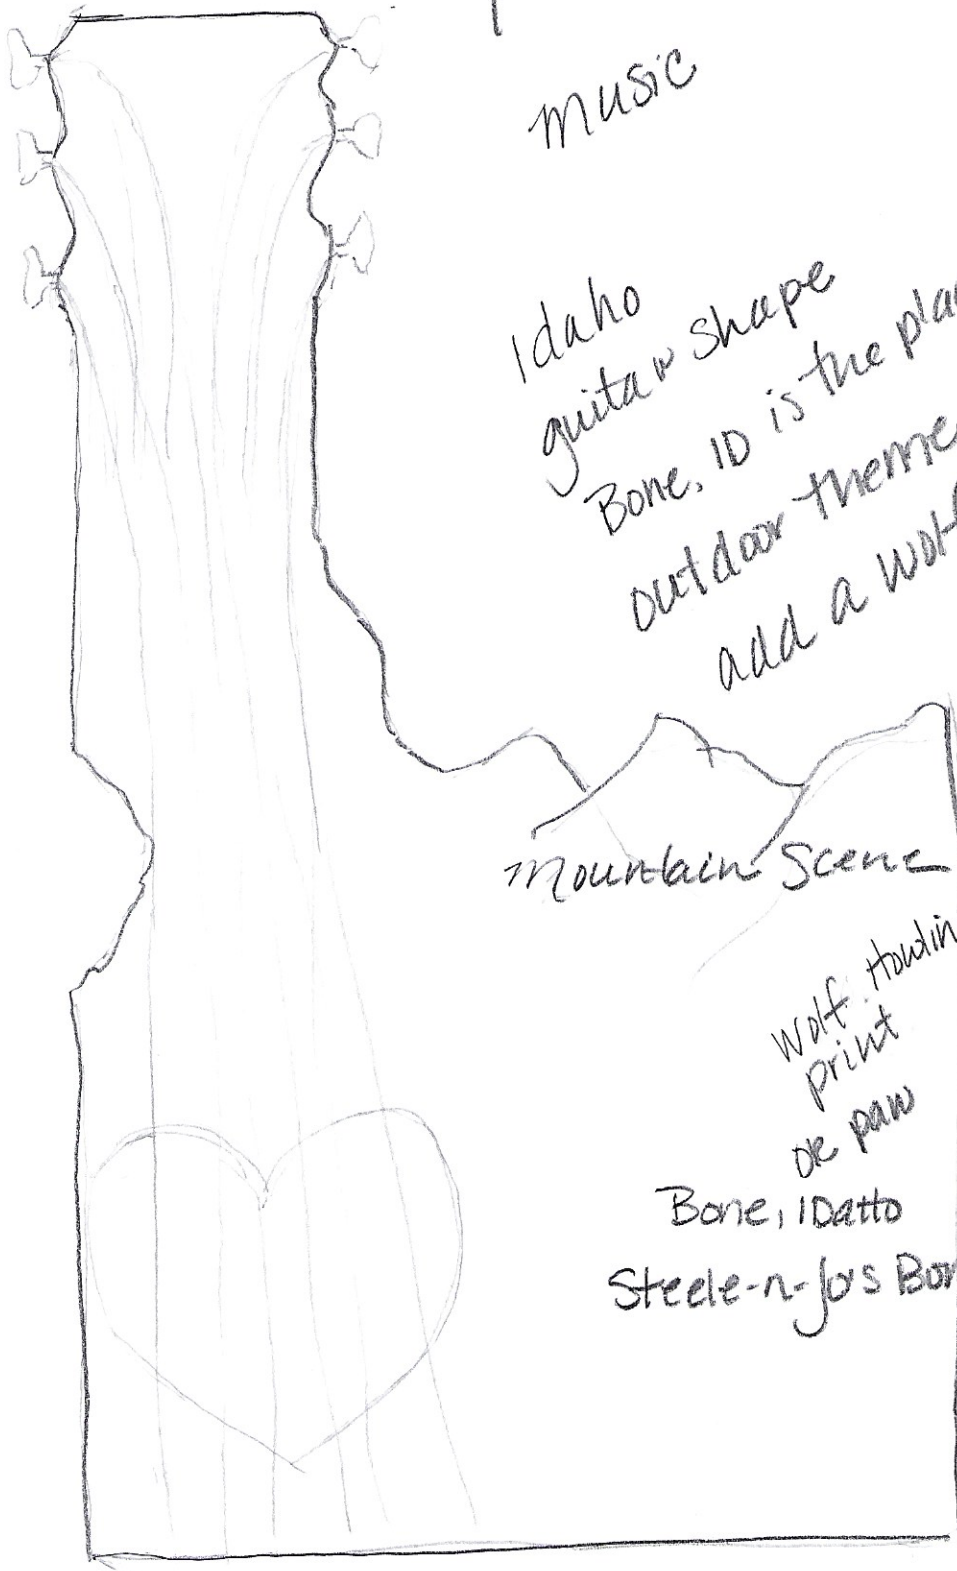 music
Idaho
guitar shape
Bone, ID is the
outdoor theme
add a
Mountain Scene
Wolf Howlin
print
or paw
Bone, IDaHo
Steele-n-Jo's